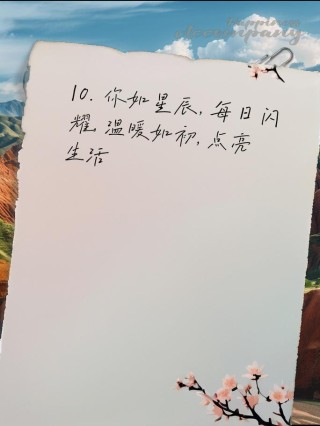 10. 你如星辰，每日闪
耀，温暖如初，点亮
生活